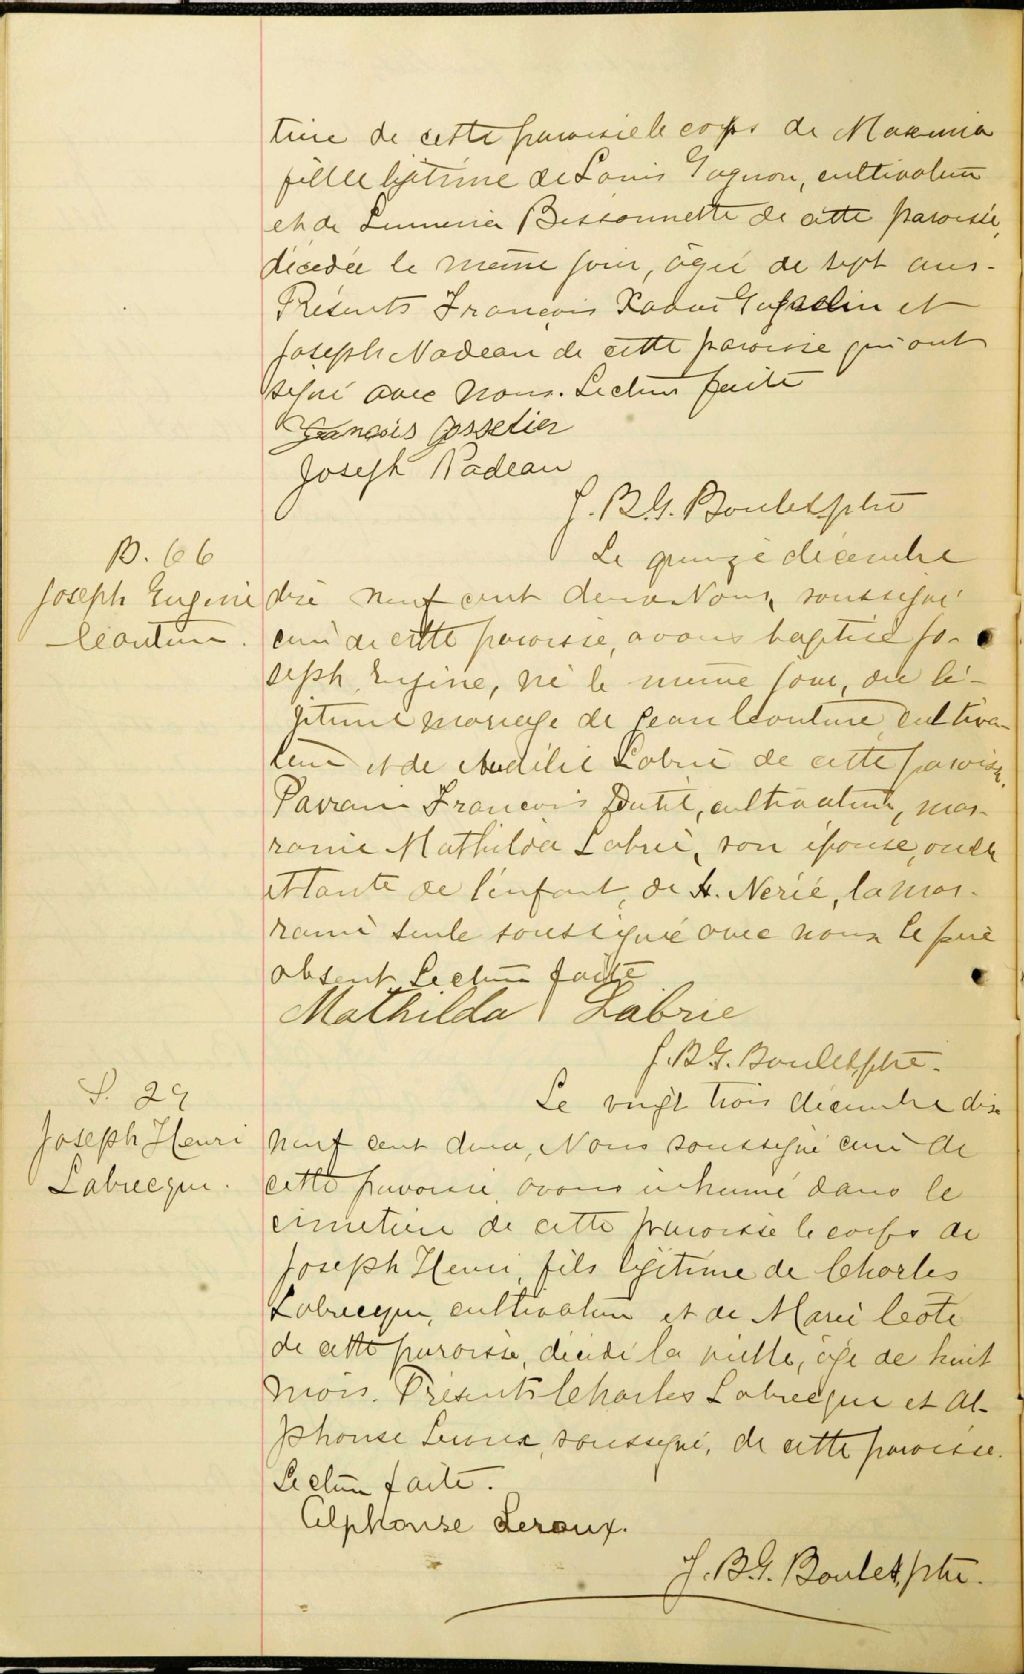 tière de cette paroisse le corps de Maximia
fille légitime de Louis Gagnon, cultivateur
et de Lumina Bissonnette de cette paroisse,
décédée le même jour, âgée de sept ans.
Présents François Xavier Gosselin et
Joseph Nadeau de cette paroisse qui ont
signé avec nous. Lecture faite
François Gosselin
Joseph Nadeau
J. B. G. Boulet, ptre
B. 66
Joseph Eugène
Couture.
Le quinze décembre
dix neuf cent deux Nous, soussigné
curé de cette paroisse, avons baptisé Jo-
seph Eugène, né le même jour, du lé-
gitime mariage de Jean Couture, cultiva-
teur et de Audélie Labrie de cette paroisse.
Parrain François Dutil, cultivateur, mar-
raine Mathilda Labrie, son épouse, oncle
et tante de l'enfant, de St. Nérée, la mar-
raine seule soussignée avec nous le père
absent. Lecture faite
Mathilda Labrie
J. B. G. Boulet, ptre.
S. 29
Joseph Henri
Labrecque.
Le vingt trois décembre dix
neuf cent deux, Nous soussigné curé de
cette paroisse avons inhumé dans le
cimetière de cette paroisse le corps de
Joseph Henri, fils légitime de Charles
Labrecque, cultivateur et de Marie Coté
de cette paroisse, décédé la veille, âgé de huit
mois. Présents Charles Labrecque et Al-
phonse Leroux, soussigné, de cette paroisse.
Lecture faite.
Alphonse Leroux.
J. B. G. Boulet, ptre.